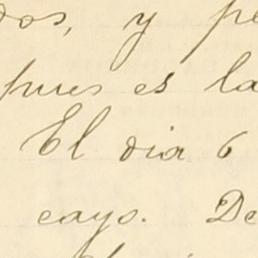 dos, y pe
pues es la
El dia 6
cayo. De